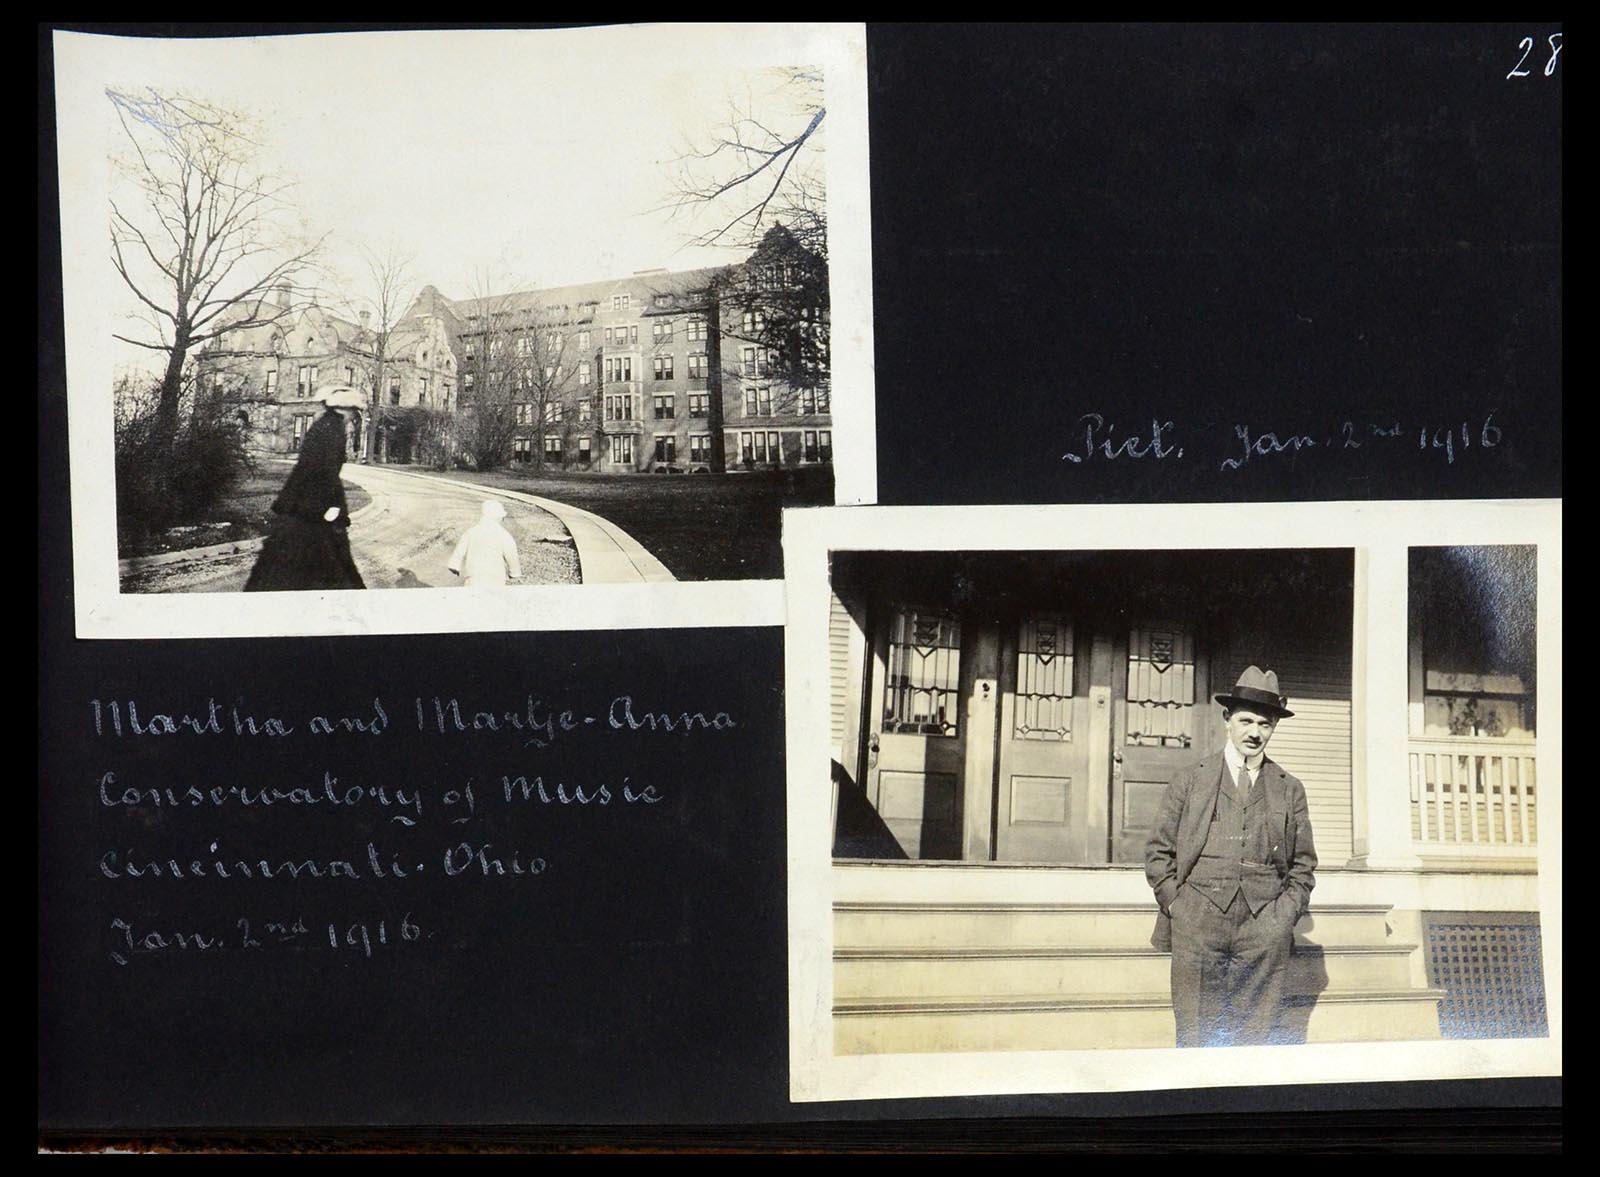 28
Piet. Jan. 2nd 1916
Martha and Martje-Anna
Conservatory of Music
Cincinnati. Ohio
Jan. 2nd 1916.